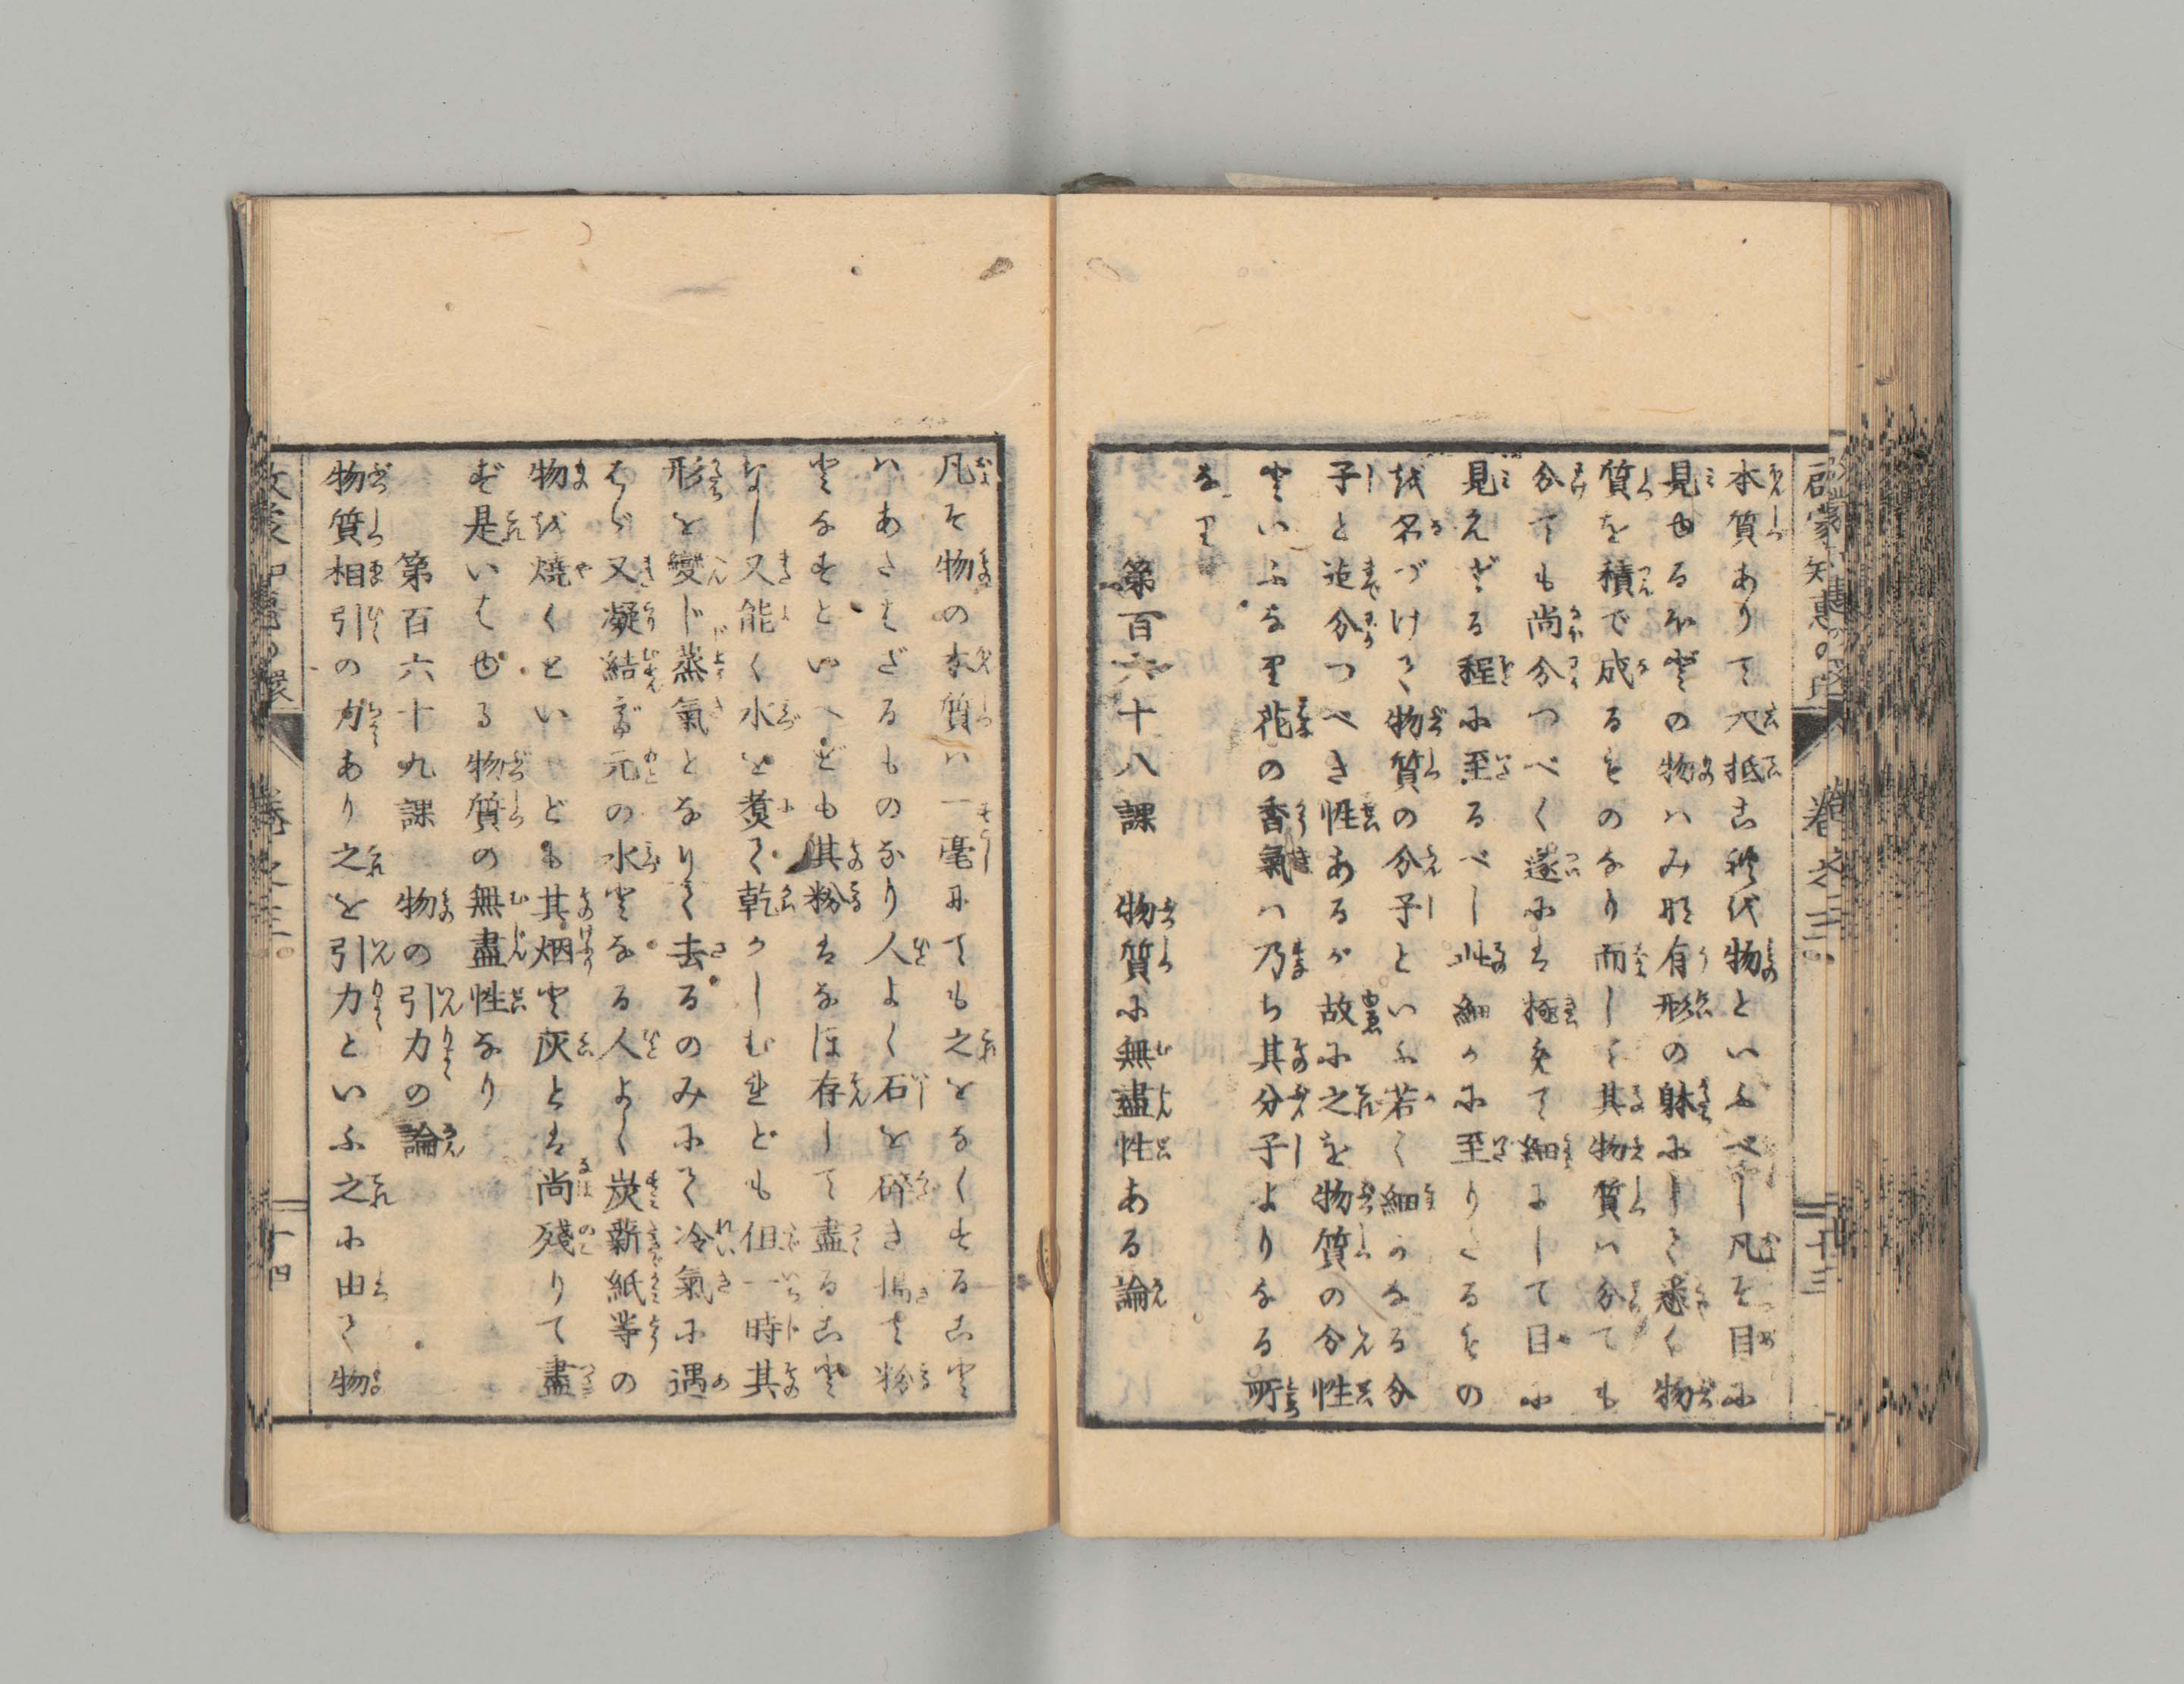 啓蒙知恵の環 巻之三 十三
本質ありて大抵これ代物といふべし凡そ目に
見ゆるほどの物ハみな有形の躰にして悉く物
質を積で成るものなり而して其物質ハ分ても
分ても尚分つべく遂には極めて細にして目に
見えざる程に至るべし此細かに至りたるもの
を名づけて物質の分子といふ若く細かなる分
子と迄分つべき性あるが故に之を物質の分性
といふなり花の香氣ハ乃ち其分子よりなる所
なり
第百六十八課 物質に無盡性ある論
凡そ物の本質ハ一毫にても之をなくすること
ハあたはざるものなり人よく石を碎き搗て粉
となすといへども其粉はなほ存して盡ること
なし又能く水を煑て乾かしむれども但一時其
形を變じ蒸氣となりて去るのみにて冷氣に遇
はゞ又凝結で元の水となる人よく炭薪紙等の
物を燒くといへども其烟と灰とは尚殘りて盡
ず是いはゆる物質の無盡性なり
第百六十九課 物の引力の論
物質相引の力あり之を引力といふ之に由て物
啓蒙知恵の環 巻之三 十四